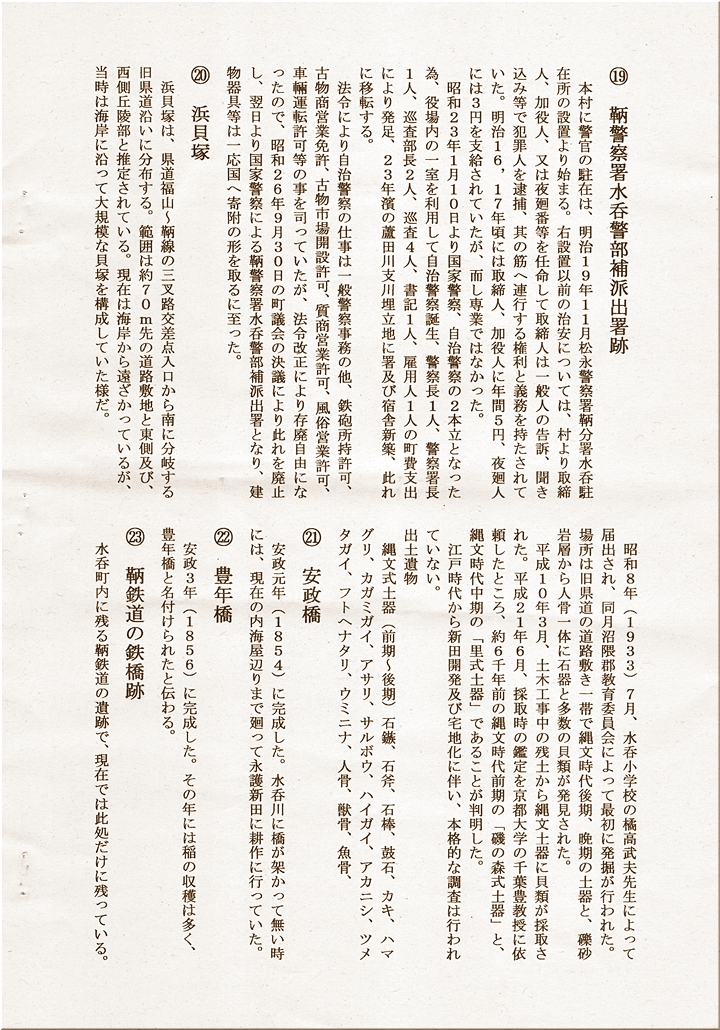 ⑲　鞆警察署水呑警部補派出署跡
　本村に警官の駐在は、明治19年11月松永警察署鞆分署水呑駐
在所の設置より始まる。右設置以前の治安については、村より取締
人、加役人、又は夜廻番等を任命して取締人は一般人の告訴、聞き
込み等で犯罪人を逮捕、其の筋へ連行する権利と義務を持たされて
いた。明治16，17年頃には取締人、加役人に年間5円、夜廻人
には3円を支給されていたが、而し専業ではなかった。
　昭和23年1月10日より国家警察、自治警察の2本立となった
為、役場内の一室を利用して自治警察誕生、警察長1人、警察署長
1人、巡査部長2人、巡査4人、書記1人、雇用人1人の町費支出
により発足、23年濱の蘆田川支川埋立地に署及び宿舎新築、此れ
に移転する。
　法令により自治警察の仕事は一般警察事務の他、鉄砲所持許可、
古物商営業免許、古物市場開設許可、質商営業許可、風俗営業許可、
車輛運転許可等の事を司っていたが、法令改正により存廃自由にな
ったので、昭和26年9月30日の町議会の決議により此れを廃止
し、翌日より国家警察による鞆警察署水呑警部補派出署となり、建
物器具等は一応国へ寄附の形を取るに至った。
⑳　浜貝塚
　浜貝塚は、県道福山～鞆線の三叉路交差点入口から南に分岐する
旧県道沿いに分布する。範囲は約70m先の道路敷地と東側及び、
西側丘陵部と推定されている。現在は海岸から遠ざかっているが、
当時は海岸に沿って大規模な貝塚を構成していた様だ。
　昭和8年（1933）7月、水呑小学校の橘高武夫先生によって
届出され、同月沼隈郡教育委員会によって最初に発掘が行われた。
場所は旧県道の道路敷き一帯で縄文時代後期、晩期の土器と、礫砂
岩層から人骨一体に石器と多数の貝類が発見された。
　平成10年3月、土木工事中の残土から縄文土器に貝類が採取さ
れた。平成21年6月、採取時の鑑定を京都大学の千葉豊教授に依
頼したところ、約6千年前の縄文時代前期の「磯の森式土器」と、
縄文時代中期の「里式土器」であることが判明した。
　江戸時代から新田開発及び宅地化に伴い、本格的な調査は行われ
ていない。
出土遺物
　縄文式土器（前期～後期）石鏃、石斧、石棒、鼓石、カキ、ハマ
グリ、カガミガイ、アサリ、サルボウ、ハイガイ、アカニシ、ツメ
タガイ、フトヘナタリ、ウミニナ、人骨、獣骨、魚骨、
㉑　安政橋
　安政元年（1854）に完成した。水呑川に橋が架かって無い時
には、現在の内海屋辺りまで廻って永護新田に耕作に行っていた。
㉒　豊年橋
　安政3年（1856）に完成した。その年には稲の収穫は多く、
豊年橋と名付けられたと伝わる。
㉓　鞆鉄道の鉄橋跡
　水呑町内に残る鞆鉄道の遺跡で、現在では此処だけに残っている。